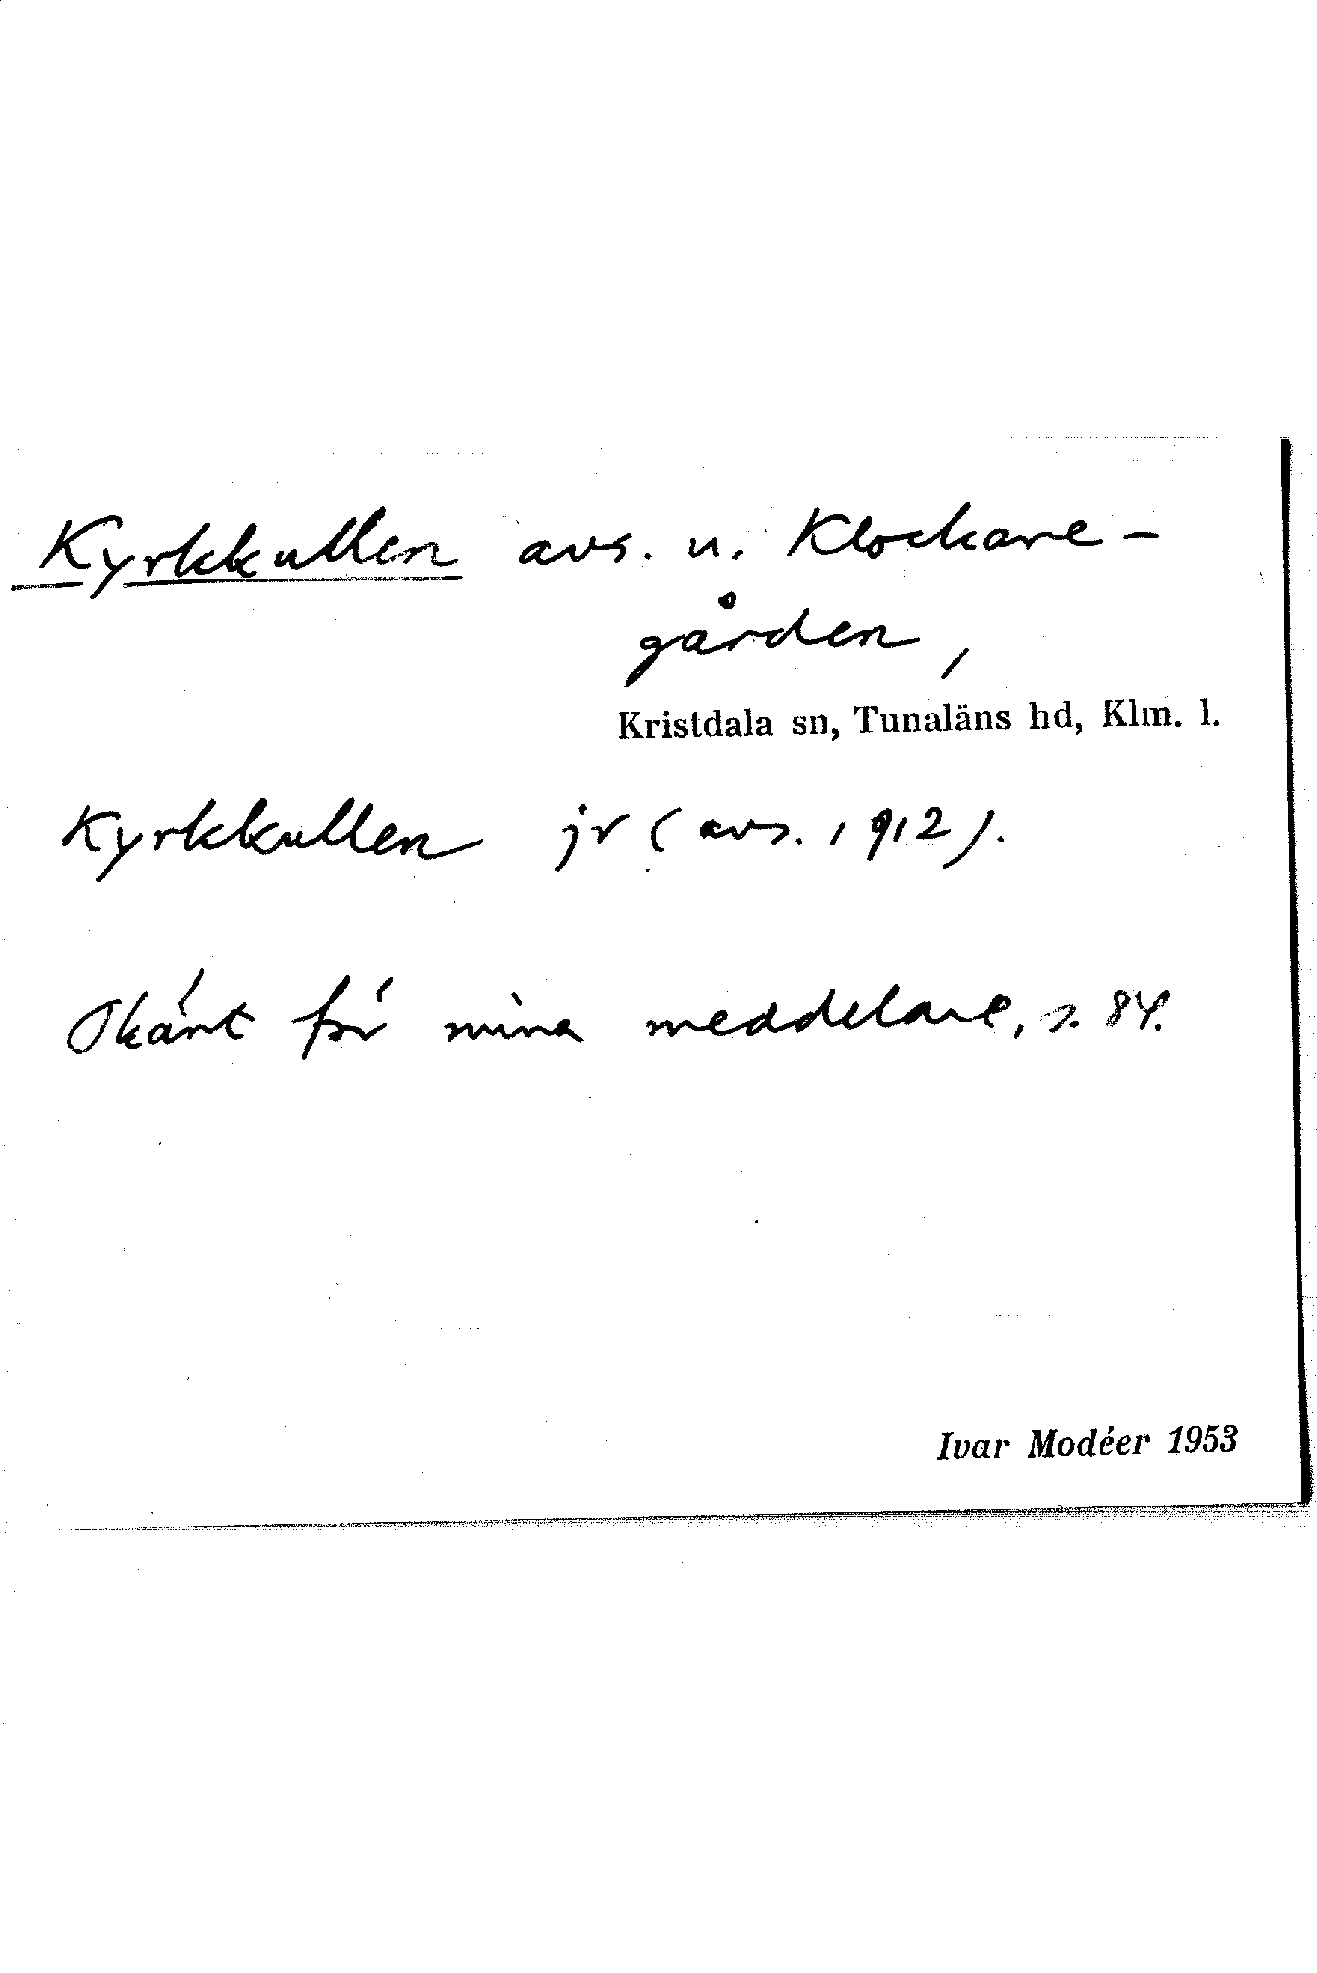 Kyrkkullen avs. u. Klockare-
gården,
Kristdala sn, Tunaläns hd, Klm. l.
Kyrkkullen jr (avs. 1912).
Okänt för mina meddelare, s. 84.
Ivar Modéer 1953